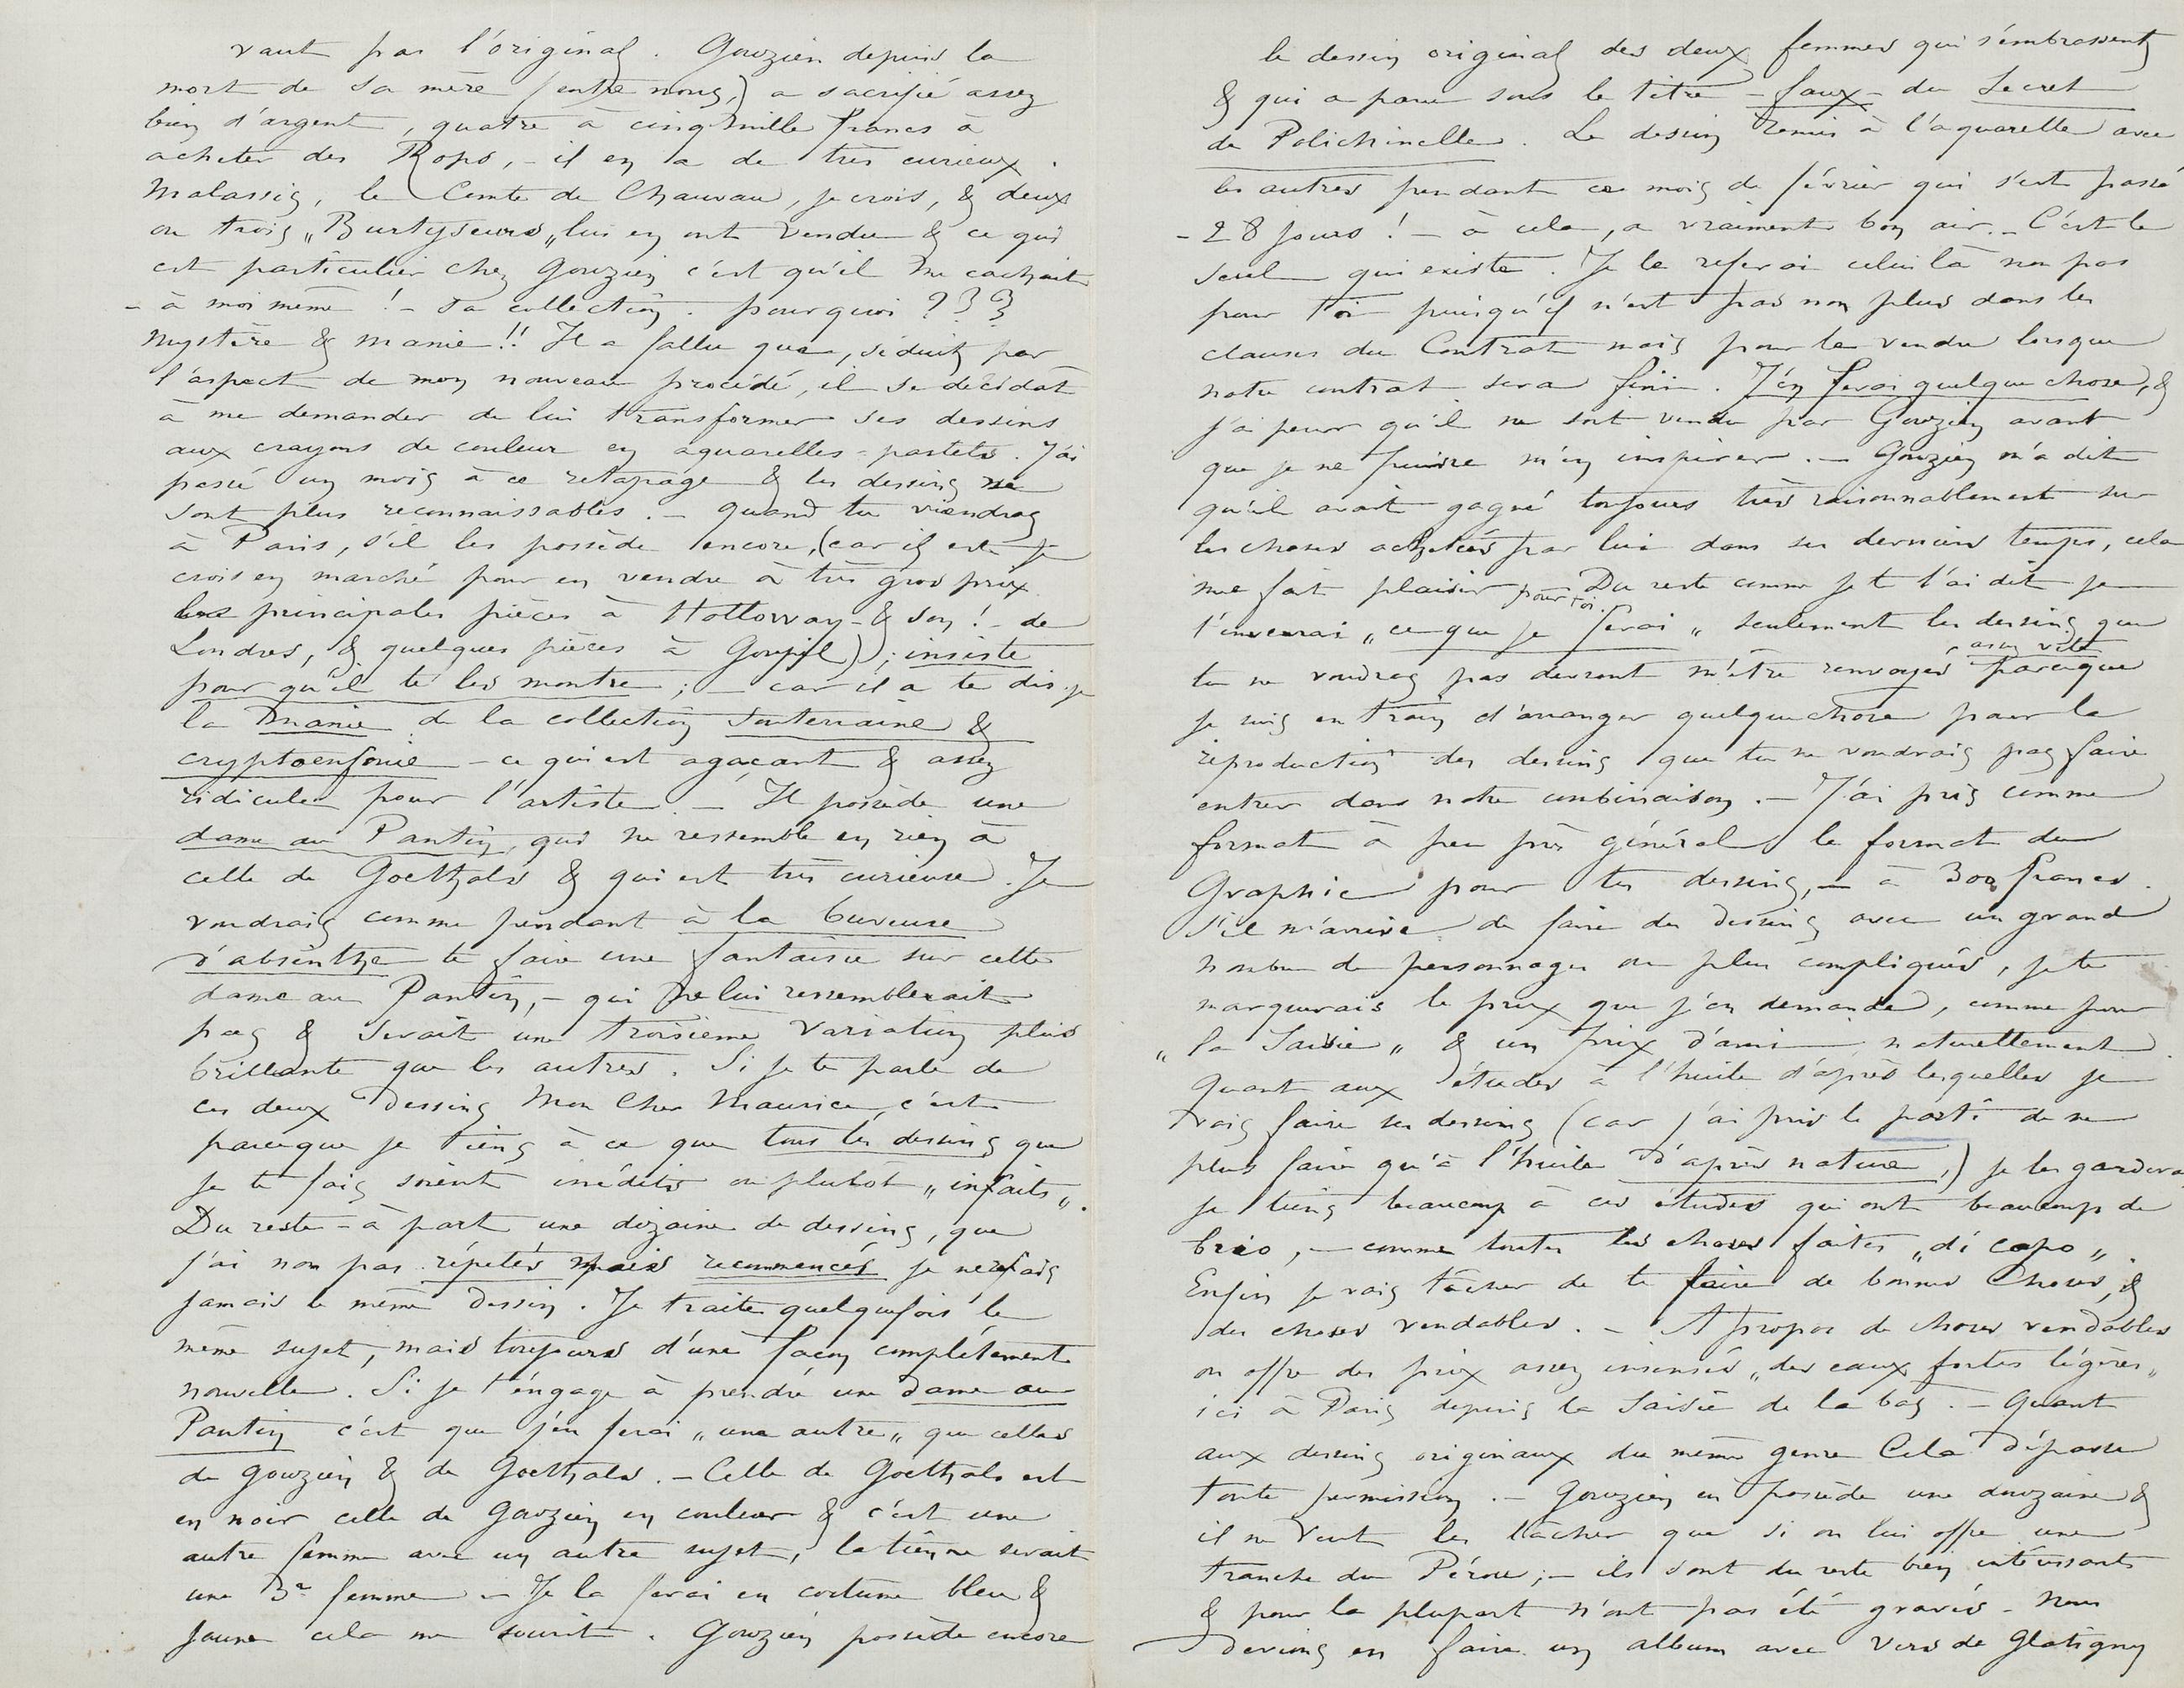 vaut pas l'original. Gouzien depuis la
mort de sa mère (entre nous,) a sacrifié assez
bien d'argent, quatre à cinq mille francs à
acheter des Rops, - il en a de très curieux.
Malassis, le Comte de Chauvau, je crois, & deux
ou trois „Burtyseurs„ lui en ont vendu & ce qui
est particulier chez Gouzien c'est qu'il me cachait
- à moi même ! - sa collection. pourquoi ???
Mystère & manie !! Il a fallu que, séduit par
l'aspect de mon nouveau procédé, il se décidât
à me demander de lui transformer ses dessins
aux crayons de couleur en aquarelles-pastels. J'ai
passé un mois à ce retapage & les dessins ne
sont plus reconnaissables. - Quand tu viendras
à Paris, s'il les possède encore, (car il est je
crois en marché pour en vendre à très gros prix
les principales pièces à Holloway - & son ! - de
Londres, & quelques pièces à Goupil) ; insiste
pour qu'il te les montre ; - car il a te dis-je
la manie de la collection souterraine &
cryptoenfouie - ce qui est agaçant & assez
ridicule pour l'artiste - Il possède une
dame au Pantin, qui ne ressemble en rien à
celle de Goethals & qui est très curieuse. Je
voudrais comme pendant à la buveuse
d'absinthe te faire une fantaisie sur cette
dame au Pantin, - qui ne lui ressemblerait
pas & serait une troisième variation plus
brillante que les autres. Si je te parle de
ces deux dessins Mon Cher Maurice, c'est
parceque je tiens à ce que tous les dessins que
je te fais soient inédits ou plutôt „infaits„.
Du reste - à part une dizaine de dessins, que
j'ai non pas répétés mais recommencés je ne refais
jamais le même dessin. Je traite quelquefois le
même sujet, mais toujours d'une façon complétement
nouvelle. Si je t'engage à prendre une dame au
Pantin c'est que j'en ferai „une autre„ que celles
de Gouzien & de Goethals. - Celle de Goethals est
en noir celle de Gouzien en couleur & c'est une
autre femme avec un autre sujet, la tienne serait
une 3e femme - Je la ferai en costume bleu &
jaune cela me sourit. Gouzien possède encore
le dessin original des deux femmes qui s'embrassent
& qui a paru sous le titre - faux - du Secret
de Polichinelle. Le dessin remis à l'aquarelle avec
les autres pendant ce mois de février qui s'est passé
- 28 jours ! - à cela, a vraiment bon air. - C'est le
seul qui existe. Je le referai celui là non pas
pour toi puisqu'il n'est pas non plus dans les
clauses du Contrat mais pour le vendre lorsque
notre contrat sera fini. J'en ferai quelque chose, &
j'ai peur qu'il ne soit vendu par Gouzien avant
que je ne puisse m'en inspirer. - Gouzien m'a dit
qu'il avait gagné toujours très raisonnablement sur
les choses achetées par lui dans ses derniers temps, cela
me fait plaisir pour toi. Du reste comme je te l'ai dit je
t'enverrai „ce que je ferai„ seulement les dessins que
tu ne voudras pas devront m'être renvoyés assez vite parceque
je suis en train d'arranger quelque chose pour la
reproduction des dessins que tu ne voudrais pas faire
entrer dans notre combinaison. - J'ai pris comme
format à peu près général le format du
Graphic pour tes dessins, - à 300 francs.
S'il m'arrive de faire des dessins avec un grand
nombre de personnages ou plus compliqués, je te
marquerais le prix que j'en demande, comme pour
„la Saisie„ & un prix d'ami naturellement.
Quant aux études à l'huile d'après lesquelles je
vais faire ses dessins (car j'ai pris le parti de ne
plus faire qu'à l'huile d'après nature,) je les garderai
je tiens beaucoup à ces études qui ont beaucoup de
brio, - comme toutes les choses faites „di capo„.
Enfin je vais tâcher de te faire de bonnes choses, &
des choses vendables. - A propos de choses vendables
on offre des prix assez insensés „des eaux fortes légères„
ici à Paris depuis la saisie de la bas. - Quant
aux dessins originaux du même genre Cela dépasse
toute permission. - Gouzien en possède une douzaine &
il ne veut les lâcher que si on lui offre une
tranche du Pérou ; - ils sont du reste bien intéressants
& pour la plupart n'ont pas été gravés - Nous
devions en faire un album avec vers de Glatigny